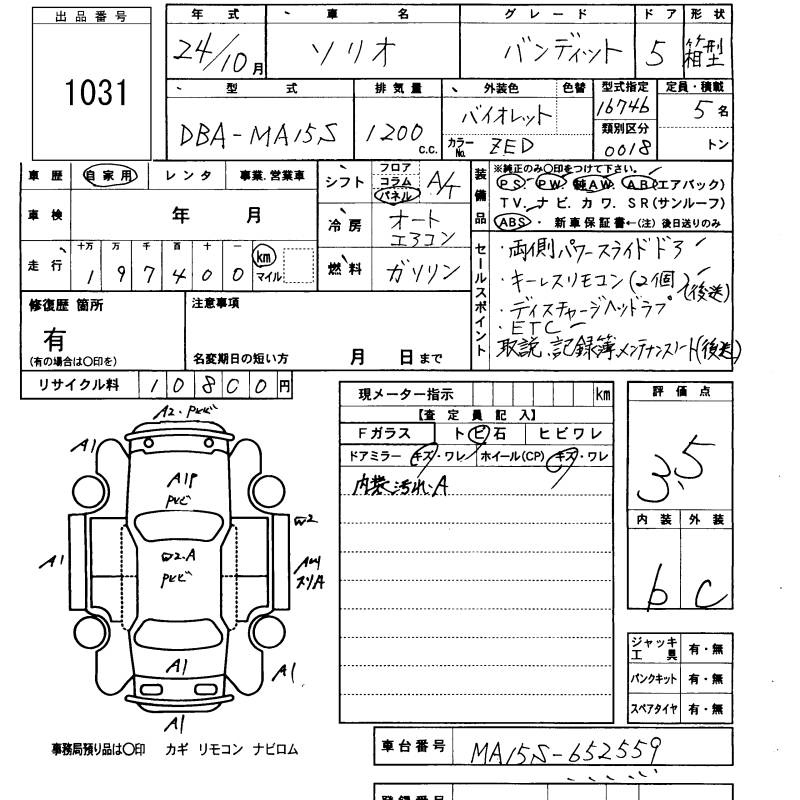 出品番号
1031
年式 車名 グレード ドア 形状
24/10月 ソリオ バンディット 5 箱型
型式 排気量 外装色 色替 型式指定 定員・積載
DBA-MA15S 1200 c.c. バイオレット 16746 5名
カラーNo. ZED 類別区分 0018 トン
車歴 自家用 レンタ 事業.営業車
シフト フロア コラム パネル A/T
装備品 ※純正のみ〇印をつけて下さい。
PS・PW・純AW・AB(エアバック)
TV.ナビ.カワ.SR(サンルーフ)
ABS・新車保証書←(注)後日送りのみ
車検 年 月
冷房 オートエアコン
走行 十万 万 千 百 十 一
197400 km マイル
燃料 ガソリン
セールスポイント
・両側パワースライドドア
・キーレスリモコン(2個)(後送)
・ディスチャージヘッドランプ
・ETC
取説、記録簿 メンテナンスノート(後送)
修復歴 箇所
有
(有の場合は〇印を)
注意事項
名変期日の短い方 月 日まで
リサイクル料 10800円
現メーター指示 km
【査定員記入】
Fガラス トビ石 ヒビワレ
ドアミラー キズ・ワレ ホイール(CP) キズ・ワレ
内装汚れ.A
評価点
3.5
内装 外装
b C
A2.PビビA1
A1P
Pビビ
W2
W2.A
Pビビ
A1
スリA
A1
A1
A1
ジャッキ工具 有・無
パンクキット 有・無
スペアタイヤ 有・無
事務局預り品は〇印 カギ リモコン ナビロム
車台番号 MA15S-652559
登録番号